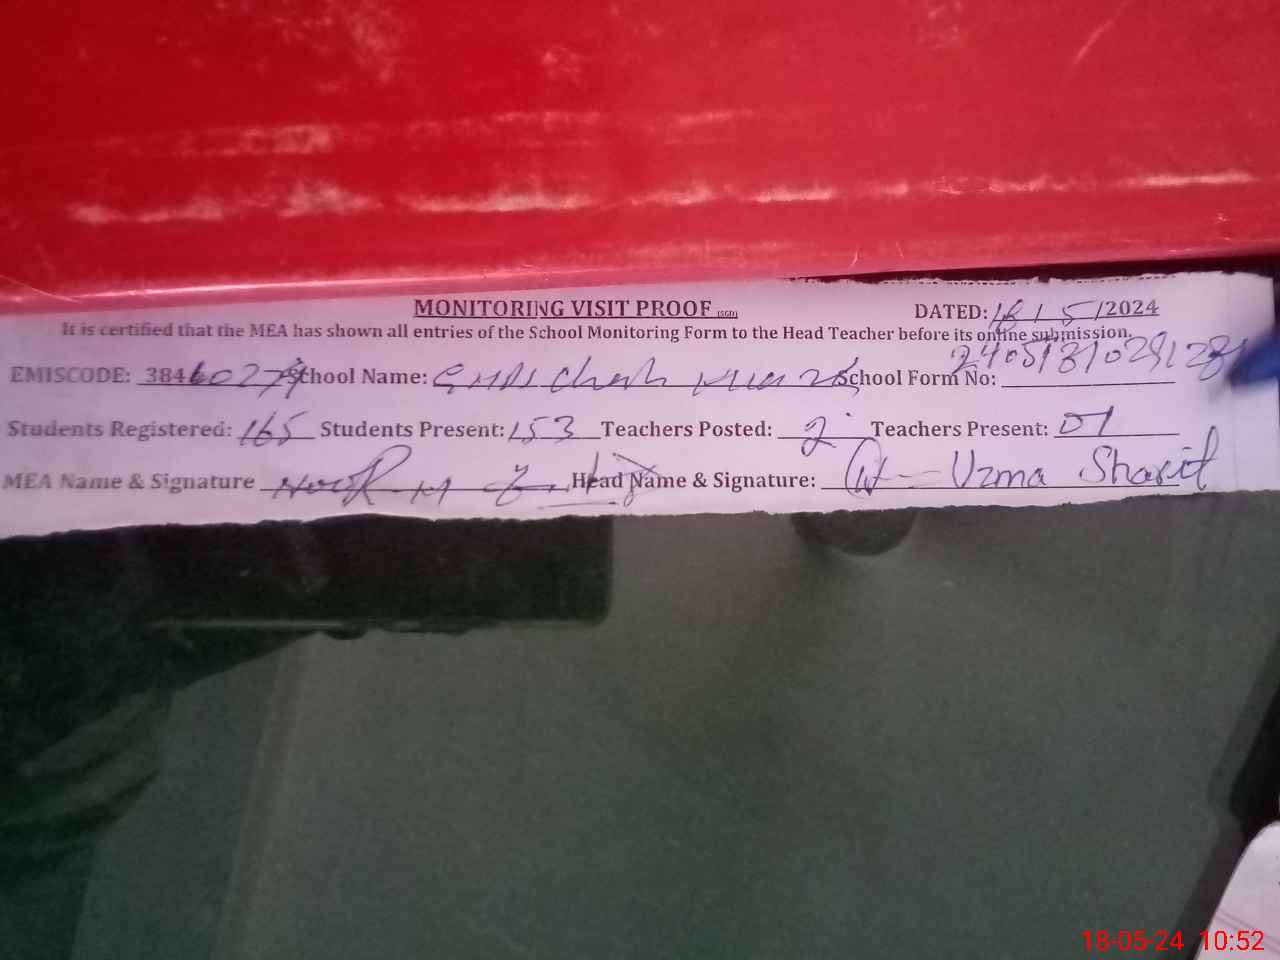 MONITORING VISIT PROOF (SGD) DATED: 18/5/2024
It is certified that the MEA has shown all entries of the School Monitoring Form to the Head Teacher before its online submission.
EMISCODE: 38460279 School Name: School Form No:
Students Registered: 165 Students Present: 153 Teachers Posted: 2 Teachers Present: 01
MEA Name & Signature Head Name & Signature: Uzma Sharif
18-05-24 10:52